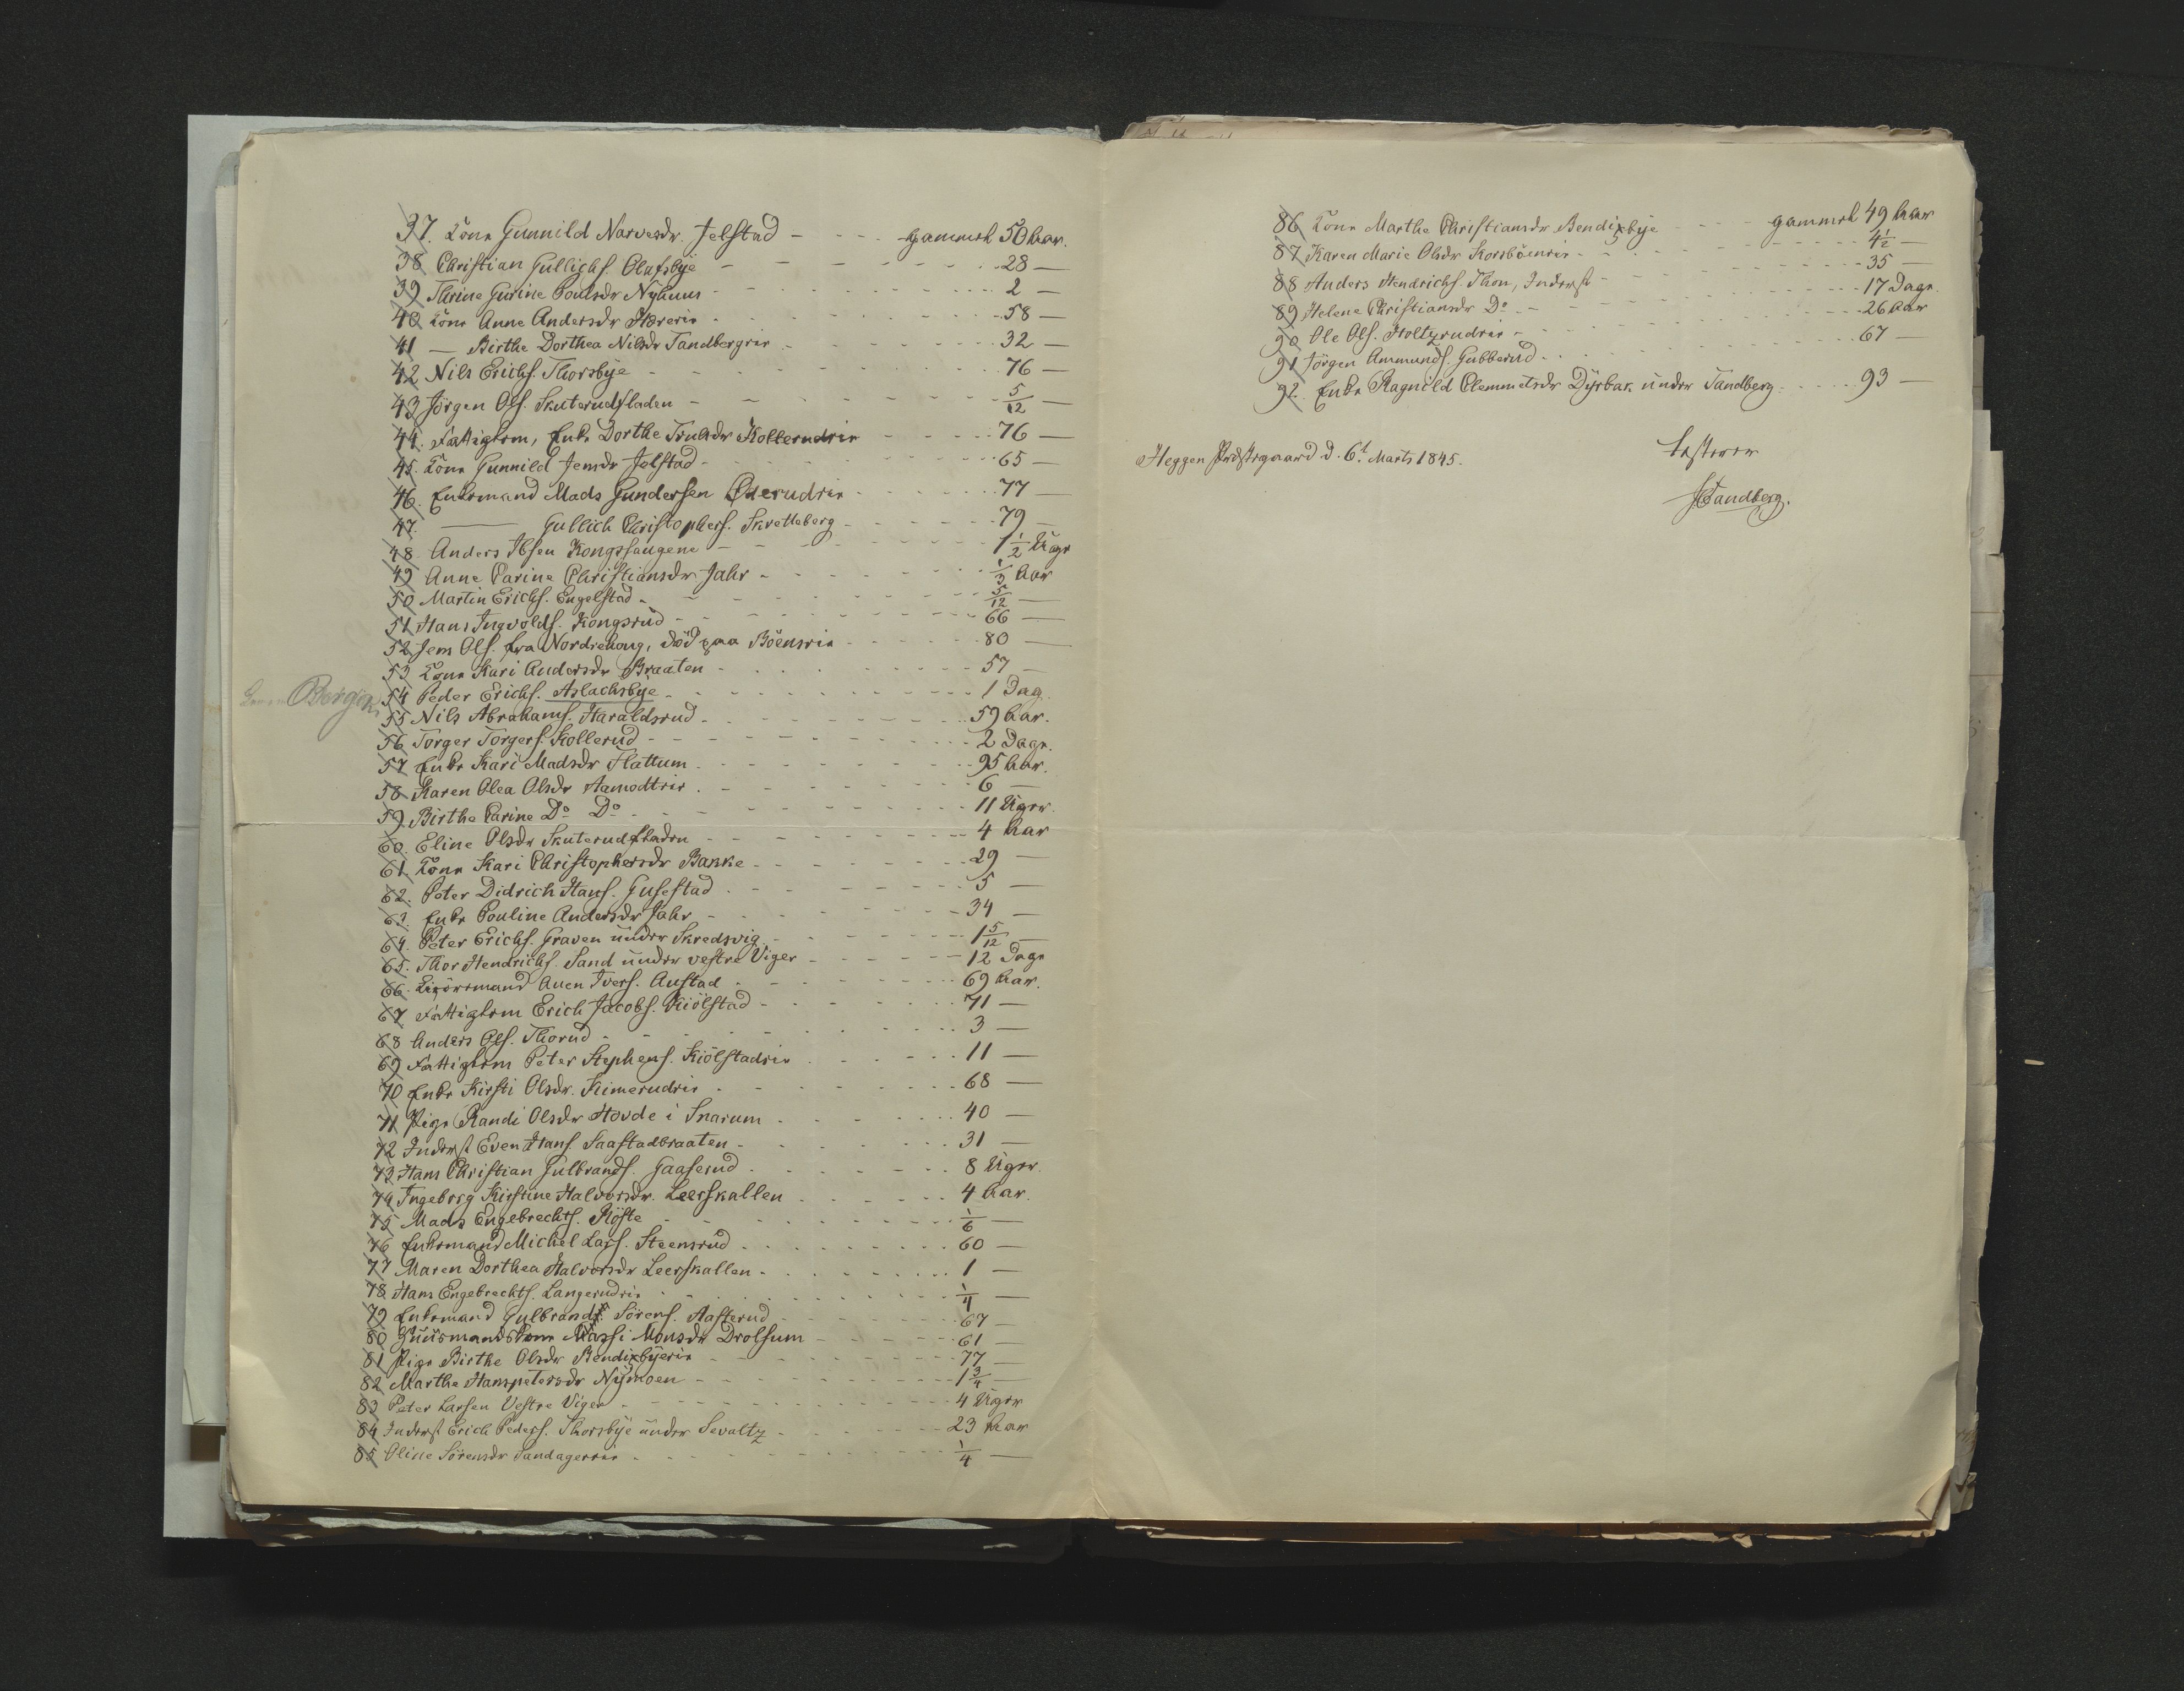 37. Kone Gunnild Narvesdr. Jelstad - - - gammel 50 Aar.
38 Christian Gullichs. Olafsbye - - - 28 —
39 Thrine Gurine Poulsdr Nyhuus - - - 2 —
40 Kone Anne Andersdr Hæreie - - - 58 —
41 — Birthe Dorthea Nilsdr Tandbergeie - - - 32 —
42 Nils Erichs. Thorsbye - - - 76 —
43 Jörgen Ols. Skuterudfladen - - - 5/12 —
44. Fattiglem, Enke Dorthe Trulsdr Kollerudeie - - - 76 —
45. Kone Gunnild Jensdr Jelstad - - - 65 —
46. Enkemand Mads Gundersen Overudeie - - - 77 —
47. — Gullich Christophers. Skretteberg - - - 79 —
48 Anders Ibsen Kongssaugene - - - 1 1/2 Uge
49 Anne Carine Christiansdr Jahr - - - 1/3 Aar
50 Martin Erichs. Engelstad - - - 5/12 —
51 Hans Ingvolds. Kongsrud - - - 66 —
52 Jens Ols. fra Norderhoug, död paa Böenseie - - - 80 —
53 Kone Kari Andersdr Braaten - - - 57 —
Bergan 54 Peder Erichs. Aslachsbye - - - 1 Dag.
55 Nils Abrahams. Haraldsrud - - - 59 Aar.
56 Torger Torgers. Kollerud - - - 2 Dage.
57 Enke Kari Madsdr Flattum - - - 95 Aar.
58 Karen Olea Olsdr Aamodteie - - - 6 —
59. Birthe Carine Do Do - - - 11 Uger.
60. Eline Olsdr Skuterudfladen - - - 4 Aar
61. Kone Kari Christophersdr Bakke - - - 29 —
62. Peter Didrich Hans. Gusestad - - - 5 —
63. Enke Pouline Andersdr Jahr - - - 34 —
64. Peter Erichs. Graven under Skredsvig - - - 1 5/12 —
65. Thor Hendrichs. Sand under vestre Viger - - - 12 Dage
66. Ligörsmand Auen Ivers. Austad - - - 69 Aar.
67 Fattiglem Erich Jacobs. Kiölstad - - - 71 —
68 Anders Ols. Thorud - - - 3 —
69 Fattiglem Peter Stephens. Kiölstadeie - - - 11 —
70 Enke Kirsti Olsdr. Kimerudeie - - - 68 —
71 Pige Randi Olsdr Hovde i Snarum - - - 40 —
72 Inderst Even Hans. Saastadbraaten - - - 31 —
73 Hans Christian Gulbrands. Gaaserud - - - 8 Uger.
74 Ingeborg Kirstine Halvorsdr. Leerskallen - - - 4 Aar.
75 Mads Engebrechts. Röste - - - 1/6 —
76 Enkemand Michel Lars. Steensrud - - - 60 —
77 Maren Dorthea Halvorsdr Leerskallen - - - 1 —
78 Hans Engebrechts. Langerudeie - - - 1/4 —
79 Enkemand Gulbrand Sörens. Aasterud - - - 67 —
80 Huusmandskone Massi Monsdr Drolsum - - - 61 —
81 Pige Birthe Olsdr Bendixbyeeie - - - 77 —
82 Marthe Hanspetersdr Nymoen - - - 1 3/4 —
83 Peter Larsen Vestre Viger - - - 4 Uger
84 Inderst Erich Peders. Thorsbye under Sevaltz - - - 23 Aar
85 Oline Sörensdr Sandagereie - - - 1/4 —
86 Kone Marthe Christiansdr Bendixbye - - - gammel 49 Aar
87 Karen Marie Olsdr Korsböeneie - - - 4 1/2 —
88 Anders Hendrichs. Thon, Inderst - - - 35 —
89 Helene Christiansdr Do - - - 17 Dage.
90 Ole Ols. Holtzrudeie - - - 26 Aar
91 Jörgen Ammunds. Gubberud - - - 67 —
92. Enke Ragnild Clemmetsdr Dyrbak under Tandberg - - - 93 —
Heggen Præstegaard d. 6t Marts 1845.
testerer
Sandberg.